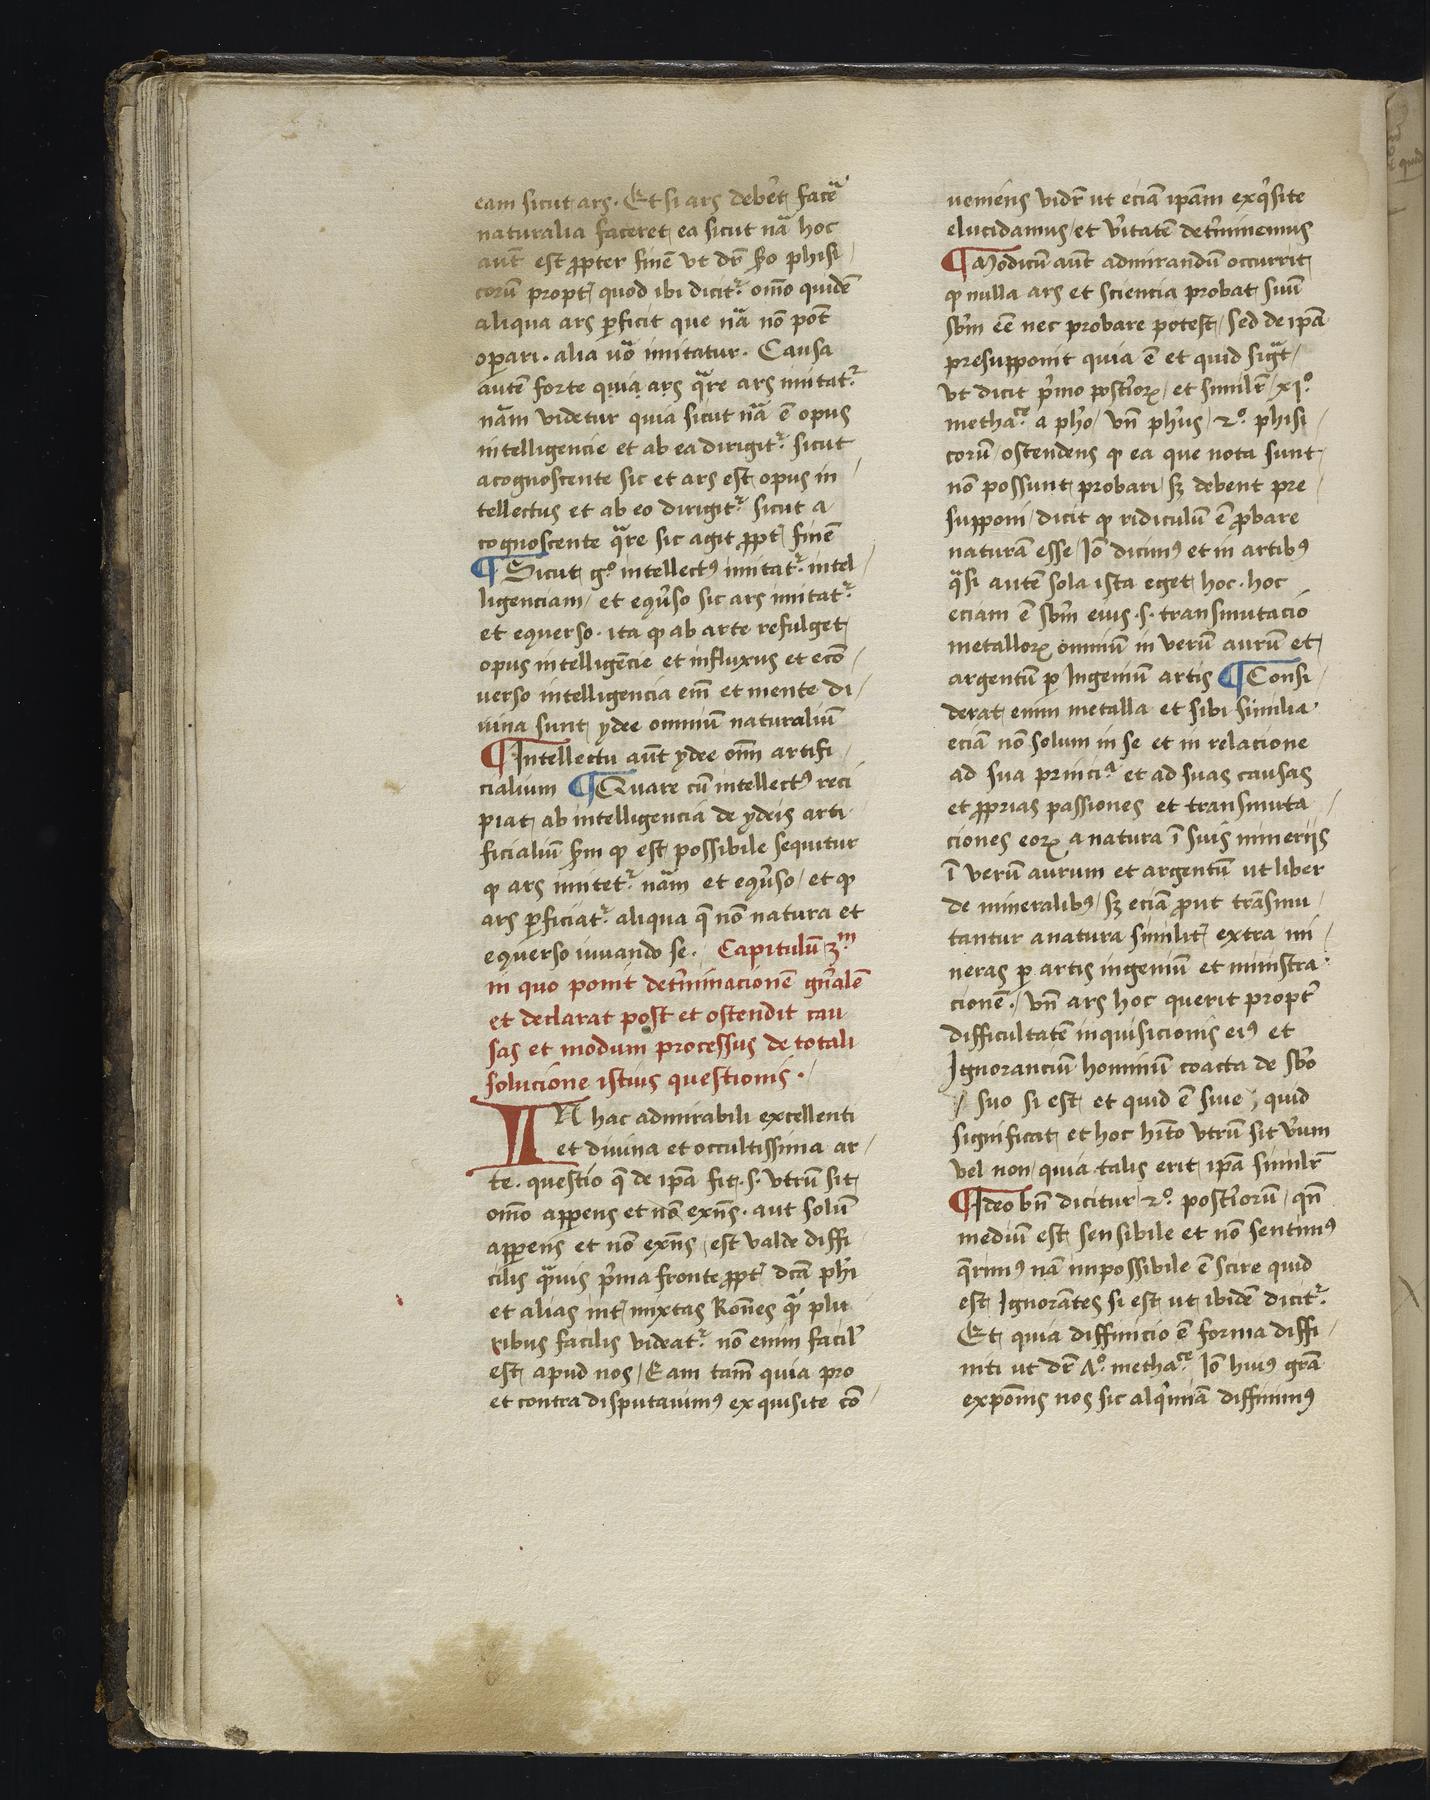 eam sicut ars. Et si ars deberet facẽ
naturalia faceret ea sicut nã hoc
aut̃ est ꝓpter finẽ vt dr̃ 2o phisi
corũ propt̃ quod ibi dicit̃ om̃o quidẽ
aliqua ars ꝑficit que nã nõ pot̃
oꝑari. alia ũo imitatur. Causa
autẽ forte quia ars q̃re ars imitat̃
nãm videtur quia sicut nã ẽ opus
intelligencie et ab ea dirigit̃ sicut
acognoscente sic et ars est opus in
tellectus et ab eo dirigit̃ sicut a
cognoscente q̃re sic agit ꝓpt̃ finẽ
¶ Sicut gº intellectꝰ imitat̃ intel
ligenciam / et eqũso sic ars imitat̃
et equerso. ita ꝙ ab arte refulget
opus intelligẽcie et influxus et ecõ
uerso intelligencia em̃ et mente di
uina sunt ydee omniũ naturaliũ
¶ Intellectu aut̃ ydee om̃i artifi
cialium ¶ Quare cũ intellectꝰ reci
piat ab intelligencia de ydeis arti
ficialiũ ẜm ꝙ est possibile sequitur
ꝙ ars imitet̃ nãm et eqũso / et ꝙ
ars ꝑficiat̃ aliqua q̃ nõ natura et
equerso iuuando se. Capitulũ 3m
in quo ponit det̃minacionẽ gñalẽ
et declarat post et ostendit cau
sas et modum processus de totali
solucione istius questionis.
IN hac admirabili excellenti
et diuina et occultissima ar
te. questio q̃ de ip̃a fit .s. vtrũ sit
om̃o apꝑens et nõ exñs. aut solũ
apꝑens et nõ exñs / est valde diffi
cilis q̃uis p̃ma fronte ꝓpt̃ dc̃a ph̃i
et alias int̃ mixtas Rõnes q̃ plu
ribus facilis videat̃ nõ enim facil̃
est apud nos / Eam tam̃ quia pro
et contra disputauimꝰ exquisite cõ
ueniens vidr̃ ut eciã ip̃am exq̃site
elucidamus / et ṽitatẽ det̃minemus
¶ Modicũ aut̃ admirandũ occurrit
ꝙ nulla ars et sciencia probat suũ
sb̃m eẽ nec probare potest / sed de ip̃a
presupponit quia ẽ et quid sig̃t /
vt dicit p̃mo post̃ioꝝ / et similr̃ xiº
metha.ce a ph̃o / vñ ph̃us / 2º phisi
corũ / ostendens ꝙ ea que nota sunt
nõ possunt probari / sꝫ debent pre
supponi / dicit ꝙ ridiculũ ẽ ꝓbare
naturã esse / Iõ dicimꝰ et in artibꝰ
q̃si autẽ sola ista eget hoc. hoc
eciam ẽ sb̃m eius .s. transmutacio
metalloꝝ omniũ in verũ aurũ et
argentũ ꝑ Ingeniũ artis ¶ Consi
derat enim metalla et sibi similia
eciã nõ solum in se et in relacione
ad sua princia et ad suas causas
et ꝓprias passiones et transmuta
ciones eoꝝ a natura ĩ suis mineriis
ĩ verũ aurum et argentũ ut liber
de mineralibꝰ / sꝫ eciã ꝓut trãsmu
tantur a natura similit̃ extra mi
neras ꝑ artis ingeniũ et ministra
cionẽ. / vñ ars hoc querit propt̃
difficultatẽ inquisicionis eiꝰ et
Ignoranciũ hominũ coacta de sb̃o
suo si est et quid ẽ siue / quid
significat et hoc hĩto vtrũ sit ṽum
vel non / quia talis erit ip̃a similr̃
¶ Ideo bñ dicitur 2º post̃iorũ / qñ
mediũ est sensibile et nõ sentimꝰ
q̃rimꝰ nã impossibile ẽ scire quid
est Ignorãtes si est ut ibidẽ dicit̃
Et quia diffinicio ẽ forma diffi
niti ut dr̃ 4º metha.ce Iõ huiꝰ grã
expõnis nos sic alq̃miã diffinimꝰ